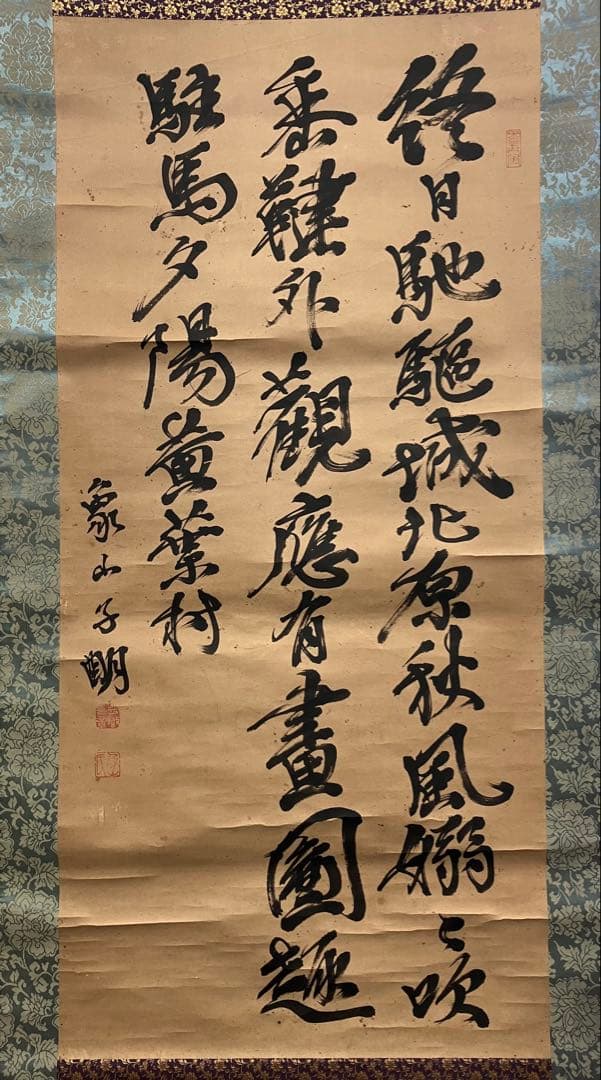 終日馳驅城北原秋風嫋〻吹
鞬外觀應有畫圖趣
駐馬夕陽黄葉村
象山子明